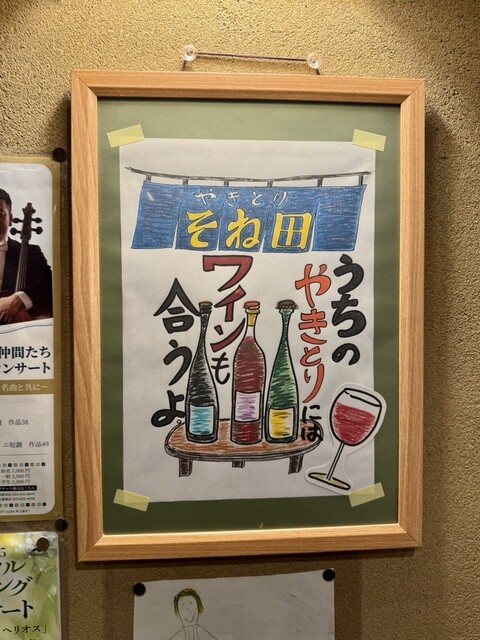 やきとり
そね田
うちの
やきとりには
ワインも
合うよ。
仲間たち
ンサート
名曲と共に〜
作品38
ニ短調 作品49
ル
ング
ート
ヘリオス」